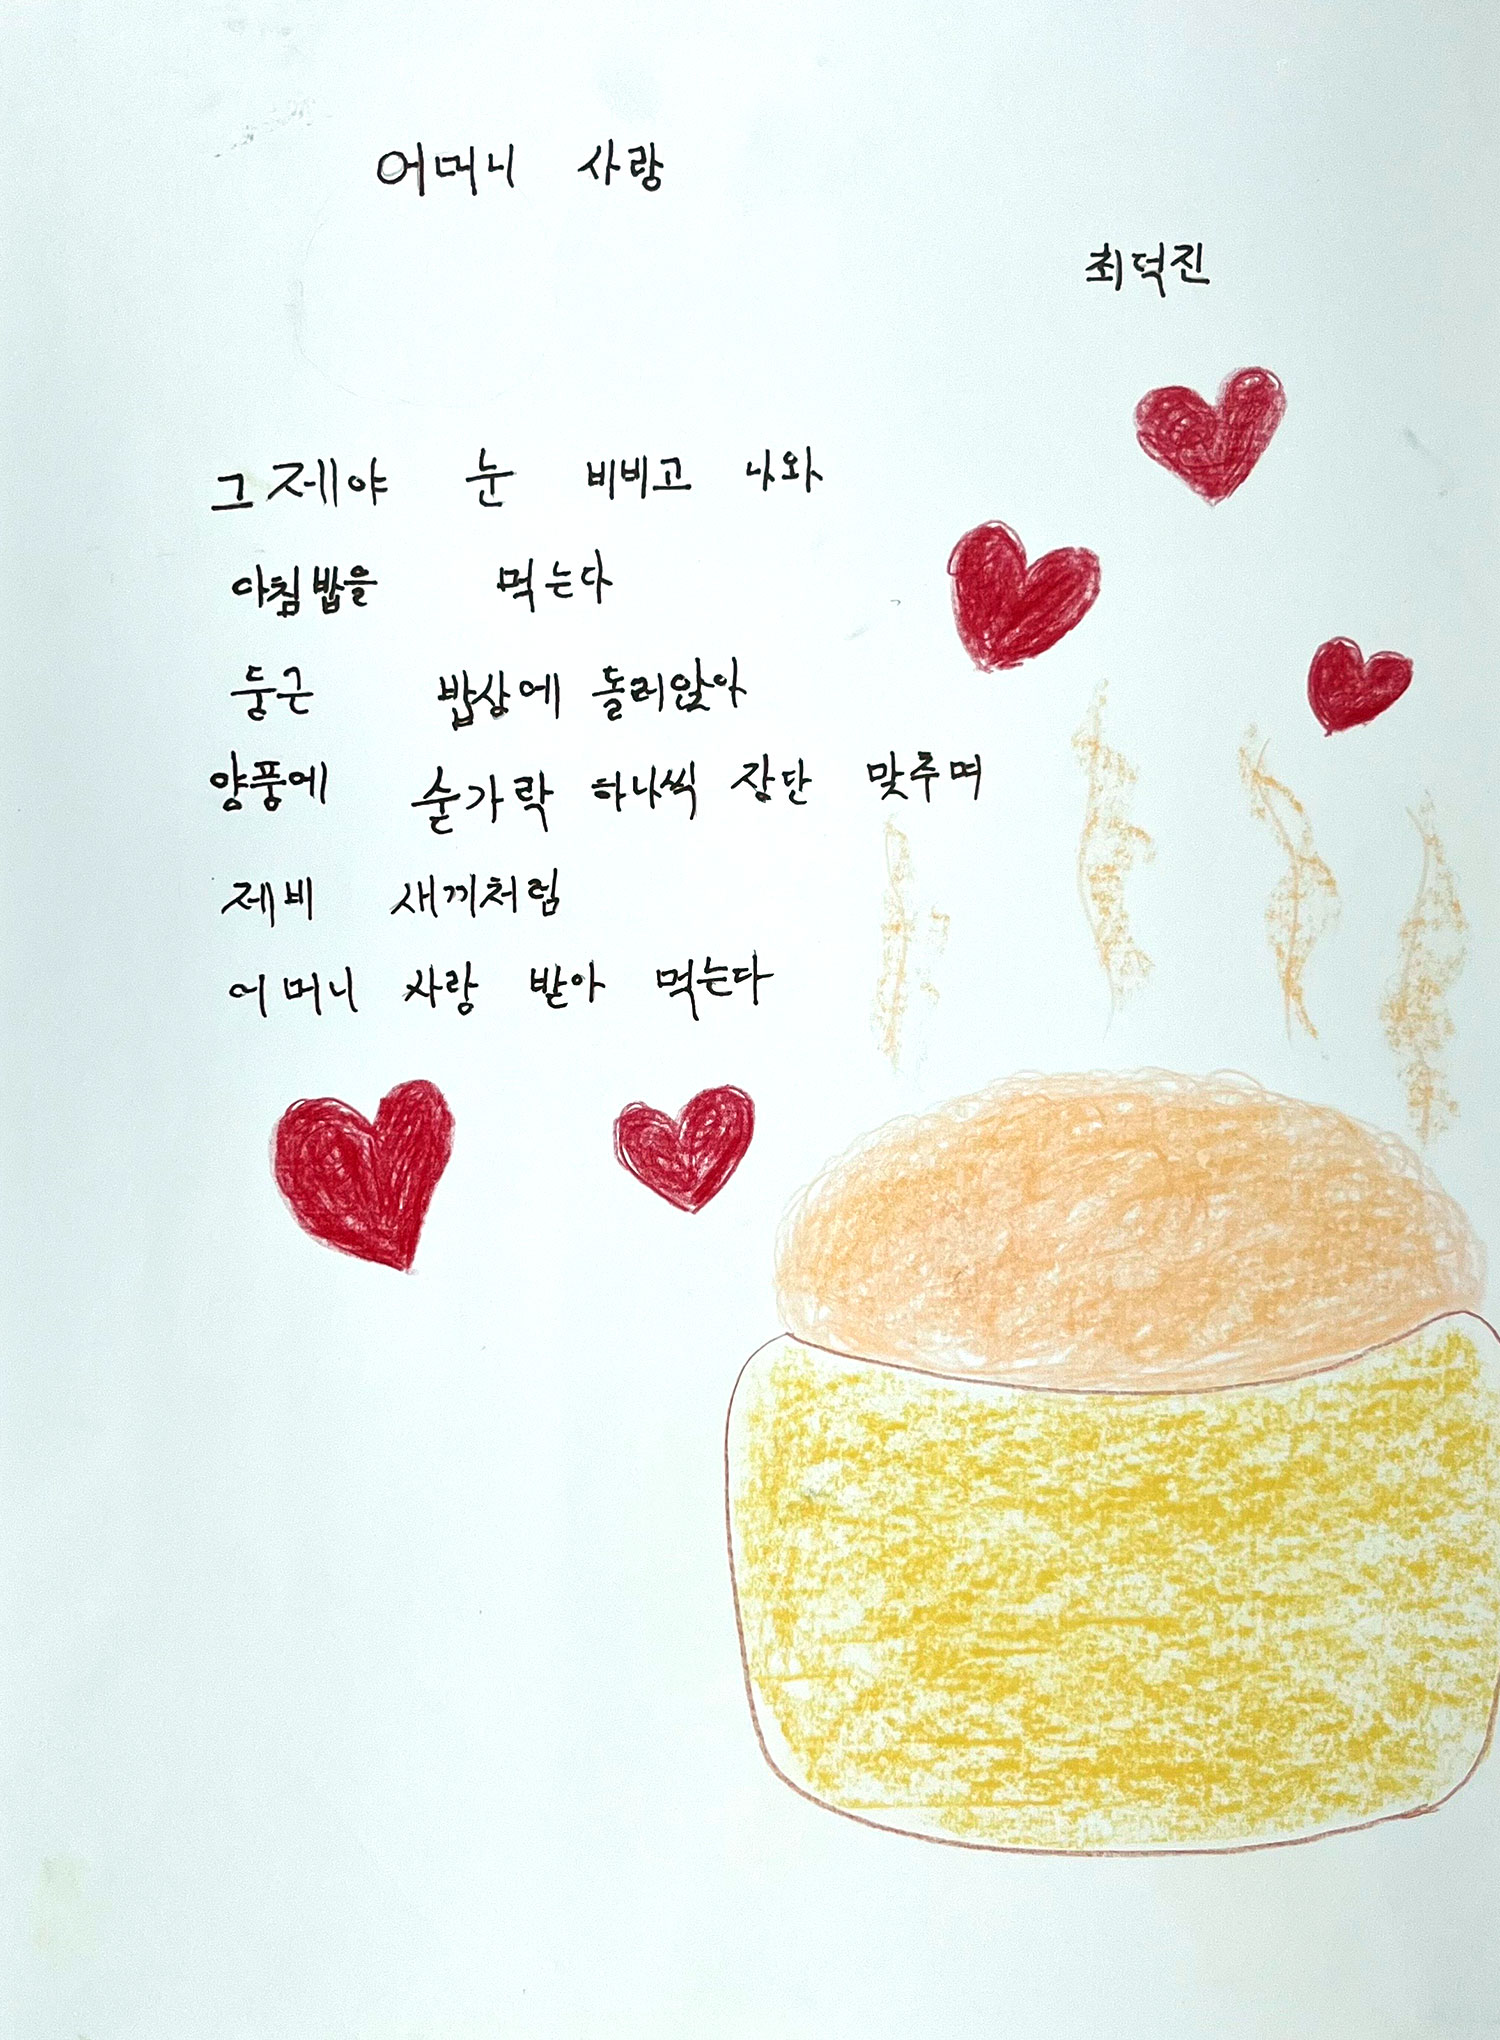 어머니 사랑
최덕진
그제야 눈 비비고 나와
아침밥을 먹는다
둥근 밥상에 돌려앉아
양품에 숟가락 하나씩 장단 맞추며
제비 새끼처럼
어머니 사랑 받아 먹는다